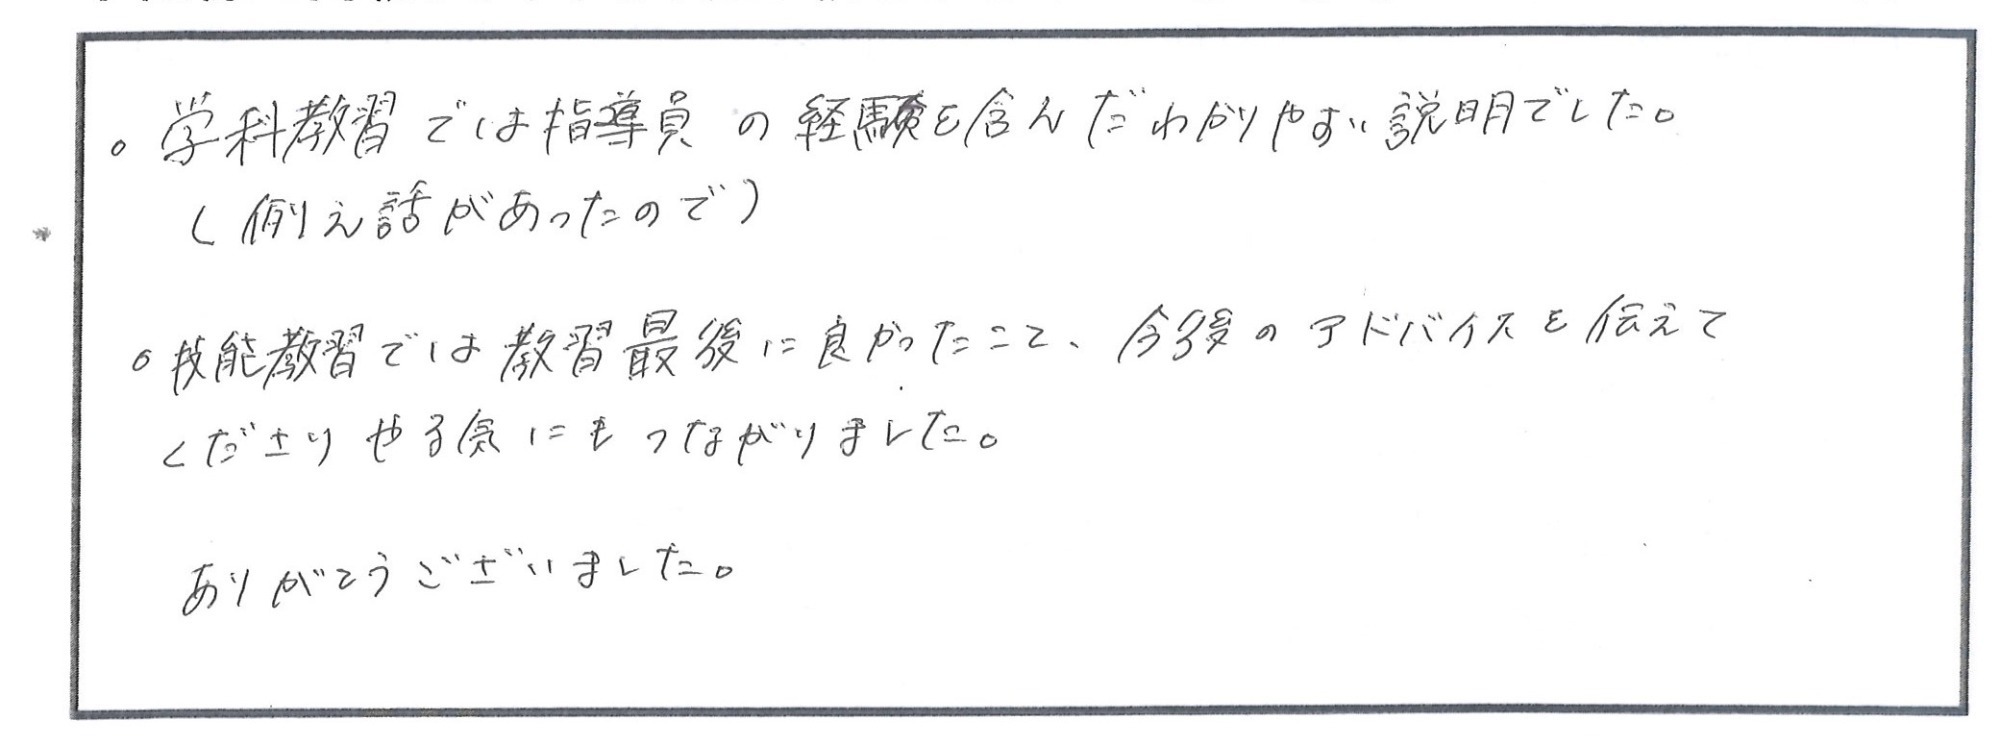 。学科教習では指導員の経験を含んだわかりやすい説明でした。
(例え話があったので)
。技能教習では教習最後に良かったこと、今後のアドバイスを伝えて
くださりやる気にもつながりました。
ありがとうございました。